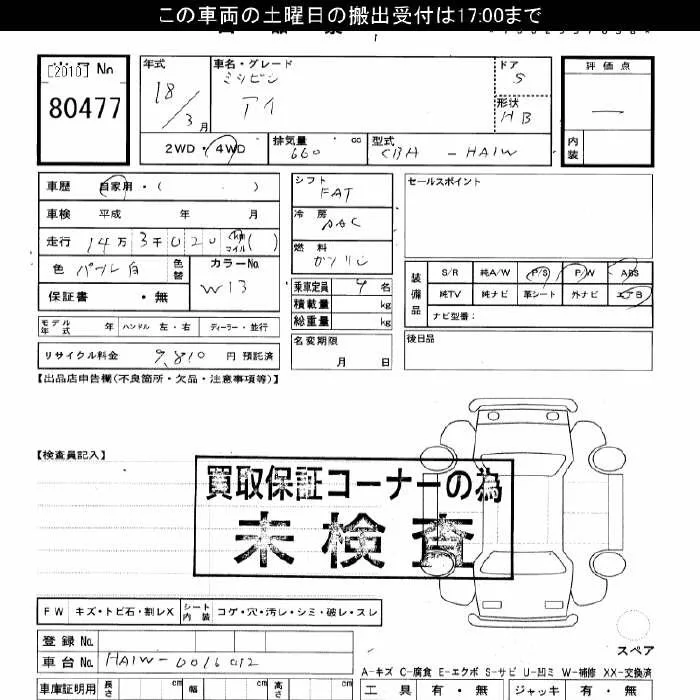 この車両の土曜日の搬出受付は17:00まで
[2010] No
80477
年式
18/3月
車名・グレード
ミツビシ
アイ
ドア
5
形状
HB
評価点
―
内装
2WD・4WD
排気量
660 cc
型式
CBA - HA1W
車歴 自家用・( )
車検 平成 年 月
走行 14万3千020 km マイル( )
色 パール白 色替
カラーNo
W13
保証書 ・無
モデル年式 年 ハンドル 左・右 ディーラー・並行
リサイクル料金 9,810 円 預託済
シフト
FAT
冷房
AAC
燃料
ガソリン
乗車定員 4 名
積載量 kg
総重量 kg
名変期限
月 日
セールスポイント
装備品 S/R 純A/W P/S P/W ABS
純TV 純ナビ 革シート 外ナビ エアB
ナビ型番:
後日品
【出品店申告欄(不良箇所・欠品・注意事項等)】
【検査員記入】
買取保証コーナーの為
未検査
FW キズ・トビ石・割レX シート内装 コゲ・穴・汚レ・シミ・破レ・スレ
登録No.
車台No. HA1W-0016012
車庫証明用 長さ cm 幅 cm 高さ cm
スペア
A-キズ C-腐食 E-エクボ S-サビ U-凹ミ W-補修 XX-交換済
工具 有・無 ジャッキ 有・無